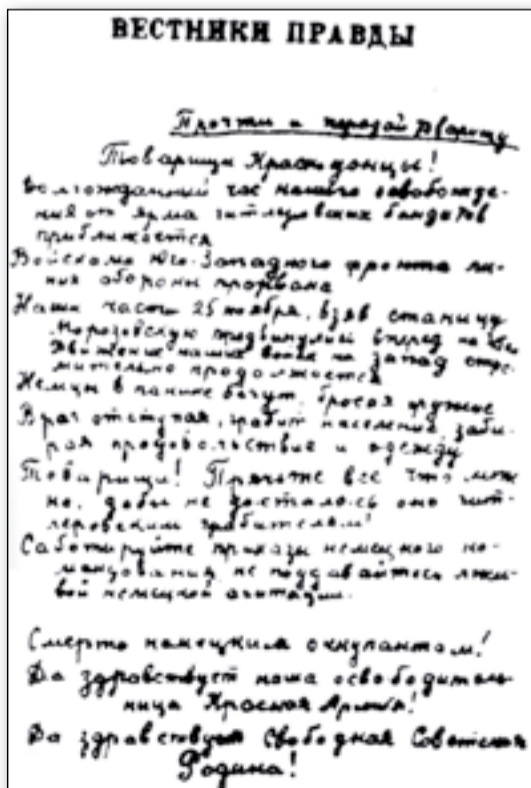 ВЕСТНИКИ ПРАВДЫ
Прочти и передай товарищу
Товарищи Краснодонцы!
Долгожданный час нашего освобожде-
ния от ярма гитлеровских бандитов
приближается
Войсками Юго-Западного фронта ли-
ния обороны прорвана
Наши части 25 ноября, взяв станицу
Морозовскую продвинулись вперед на
Движение наших войск на запад стре-
мительно продолжается
Немцы в панике бегут, бросая оружие
Враг отступая, грабит население, заби-
рая продовольствие и одежду
Товарищи! Прячьте все что мож-
но, дабы не досталось оно гит-
леровским грабителям!
Саботируйте приказы немецкого ко-
мандования, не поддавайтесь лжи-
вой немецкой агитации.
Смерть немецким оккупантам!
Да здравствует наша освободитель-
ница Красная Армия!
Да здравствует свободная Советская
Родина!